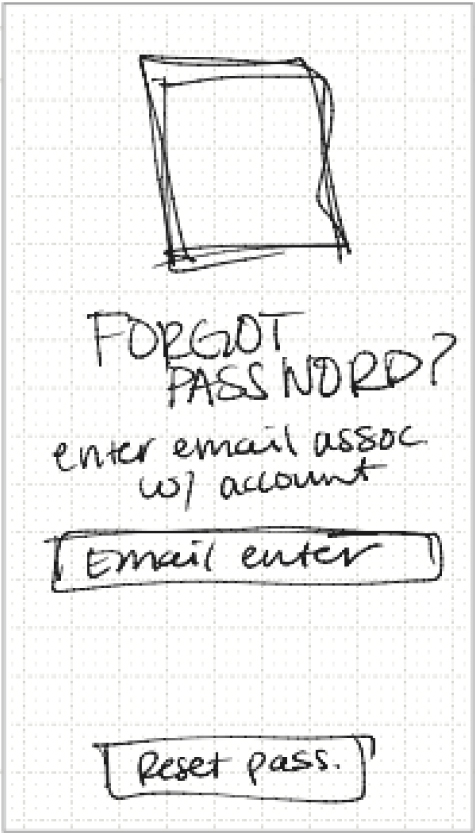 FORGOT
PASSWORD?
enter email assoc
w/ account
Email enter
Reset pass.